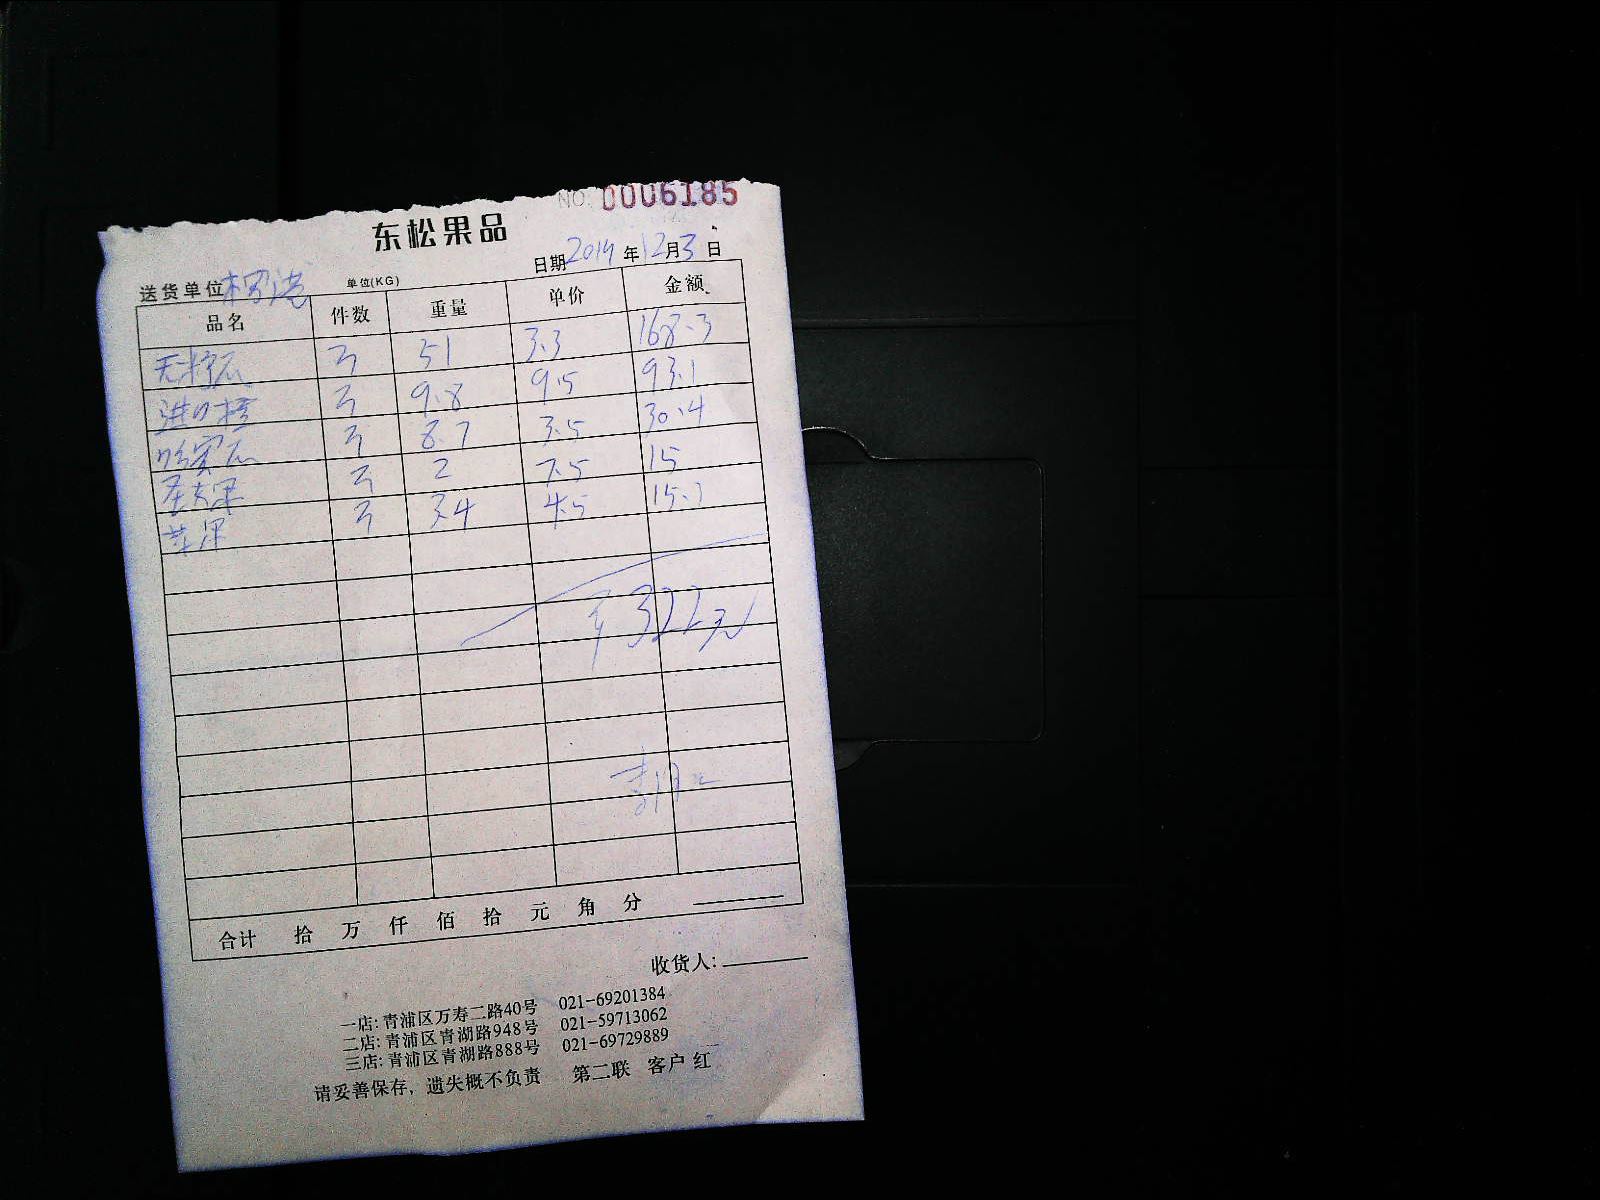 NO. 0006185
东松果品
日期 2019 年 12 月 3 日
送货单位 单位(KG)
品名 件数 重量 单价 金额
51 3.3 168.3
进口橙 9.8 9.5 93.1
哈密瓜 8.7 3.5 30.4
圣女果 2 7.5 15
苹果 3.4 4.5 15.3
322元
合计 拾 万 仟 佰 拾 元 角 分
收货人:
一店: 青浦区万寿二路40号 021-69201384
二店: 青浦区青湖路948号 021-59713062
三店: 青浦区青湖路888号 021-69729889
请妥善保存, 遗失概不负责 第二联 客户 红